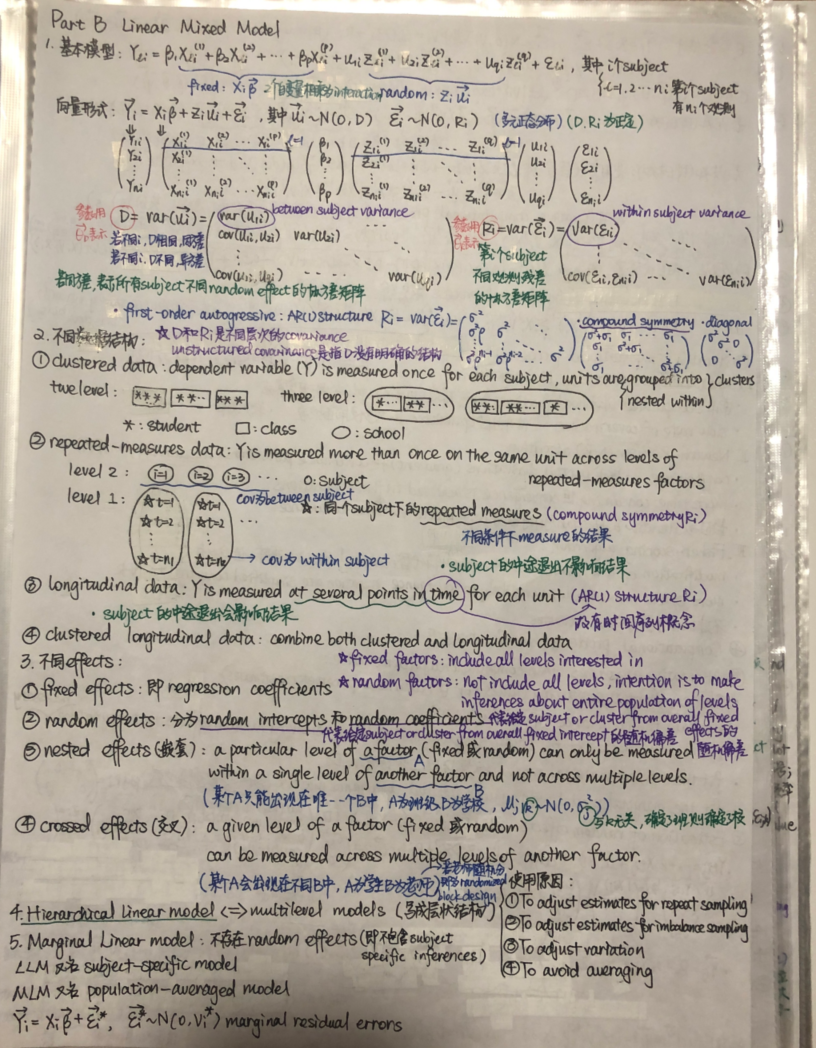 Part B Linear Mixed Model
1. 基本模型: Yti = β1 Xti^(1) + β2 Xti^(2) + ⋯ + βp Xti^(p) + u1i Zti^(1) + u2i Zti^(2) + ⋯ + uqi Zti^(q) + εti , 其中 i个subject
t=1,2⋯ni 第i个subject
有ni个观测
fixed: Xiβ random: Zi ui
向量形式: Yi = Xiβ + Zi ui + εi , 其中 ui ~ N(0, D) εi ~ N(0, Ri) (多元正态分布) (D, Ri 为正定)
Y1i X1i^(1) X1i^(2) ⋯ X1i^(p) t=1 β1 Z1i^(1) Z1i^(2) ⋯ Z1i^(q) t=1 u1i ε1i
Y2i X2i^(1) β2 Z2i^(1) u2i ε2i
⋮
Yni Xnii^(1) Xnii^(2) ⋯ Xnii^(p) βp Znii^(1) Znii^(2) ⋯ Znii^(q) uqi εnii
D = var(ui) = var(u1i) between subject variance
若不同i, D相同, 同方差
若不同i, D不同, 异方差
cov(u1i, u2i) var(u2i)
cov(u1i, uqi) ⋯ var(uqi)
若同方差, 表示所有subject不同random effect的协方差矩阵
Ri = var(εi) = var(ε1i) within subject variance
第i个subject
不同观测残差
的协方差矩阵
cov(ε1i, εnii) ⋯ var(εnii)
· first-order autoregressive: AR(1) structure Ri = var(εi) =
σ² σ²ρ σ² σ²ρ^(n-1) σ²ρ^(n-2) ⋯ σ²
· compound symmetry
σ²+σ1 σ1 σ²+σ1 σ1 σ1 σ²+σ1
· diagonal
σ² 0 σ² 0 0 σ²
2. 不同数据结构: ☆ D和Ri是不同层次的covariance
unstructured covariance是指D没有明确的结构
① clustered data: dependent variable (Y) is measured once for each subject, units are grouped into clusters
nested within
two level: three level:
*: student □: class ○: school
② repeated-measures data: Y is measured more than once on the same unit across levels of
repeated-measures factors
level 2: i=1 i=2 i=3 ⋯ O: subject
cov为between subject
level 1: ☆t=1 ☆t=1 ☆: 同一个subject下的repeated measures (compound symmetry Ri)
☆t=2 ☆t=2 ⋯
不同条件下measure的结果
☆t=n1 ☆t=n2 → cov为 within subject
· subject的中途退出不影响结果
③ longitudinal data: Y is measured at several points in time for each unit (AR(1) structure Ri)
· subject的中途退出会影响结果
没有时间序列概念
④ clustered longitudinal data: combine both clustered and longitudinal data
3. 不同effects: ☆ fixed factors: include all levels interested in
① fixed effects: 即 regression coefficients ☆ random factors: not include all levels, intention is to make
inferences about entire population of levels
② random effects: 分为random intercepts 和 random coefficients 代表给定subject or cluster from overall fixed
effects的随机偏差
代表给定subject or cluster from overall fixed intercept的随机偏差
③ nested effects (嵌套): a particular level of a factor (fixed 或 random) can only be measured
A
within a single level of another factor and not across multiple levels.
B
(某A只能出现在唯一一个B中, A为班级B为学校,
④ crossed effects (交叉): a given level of a factor (fixed 或 random)
can be measured across multiple levels of another factor.
(某A会出现在不同B中, A为学生B为老师)
即为randomized
block design
使用原因:
①To adjust estimates for repeat sampling
②To adjust estimates for imbalance sampling
③To adjust variation
④To avoid averaging
4. Hierarchical Linear model <=> multilevel models (多级层状结构)
5. Marginal Linear model: 不存在random effects (即不包含subject
specific inferences)
LLM 又名 subject-specific model
MLM 又名 population-averaged model
Yi = Xiβ + εi*, εi* ~ N(0, Vi*) marginal residual errors